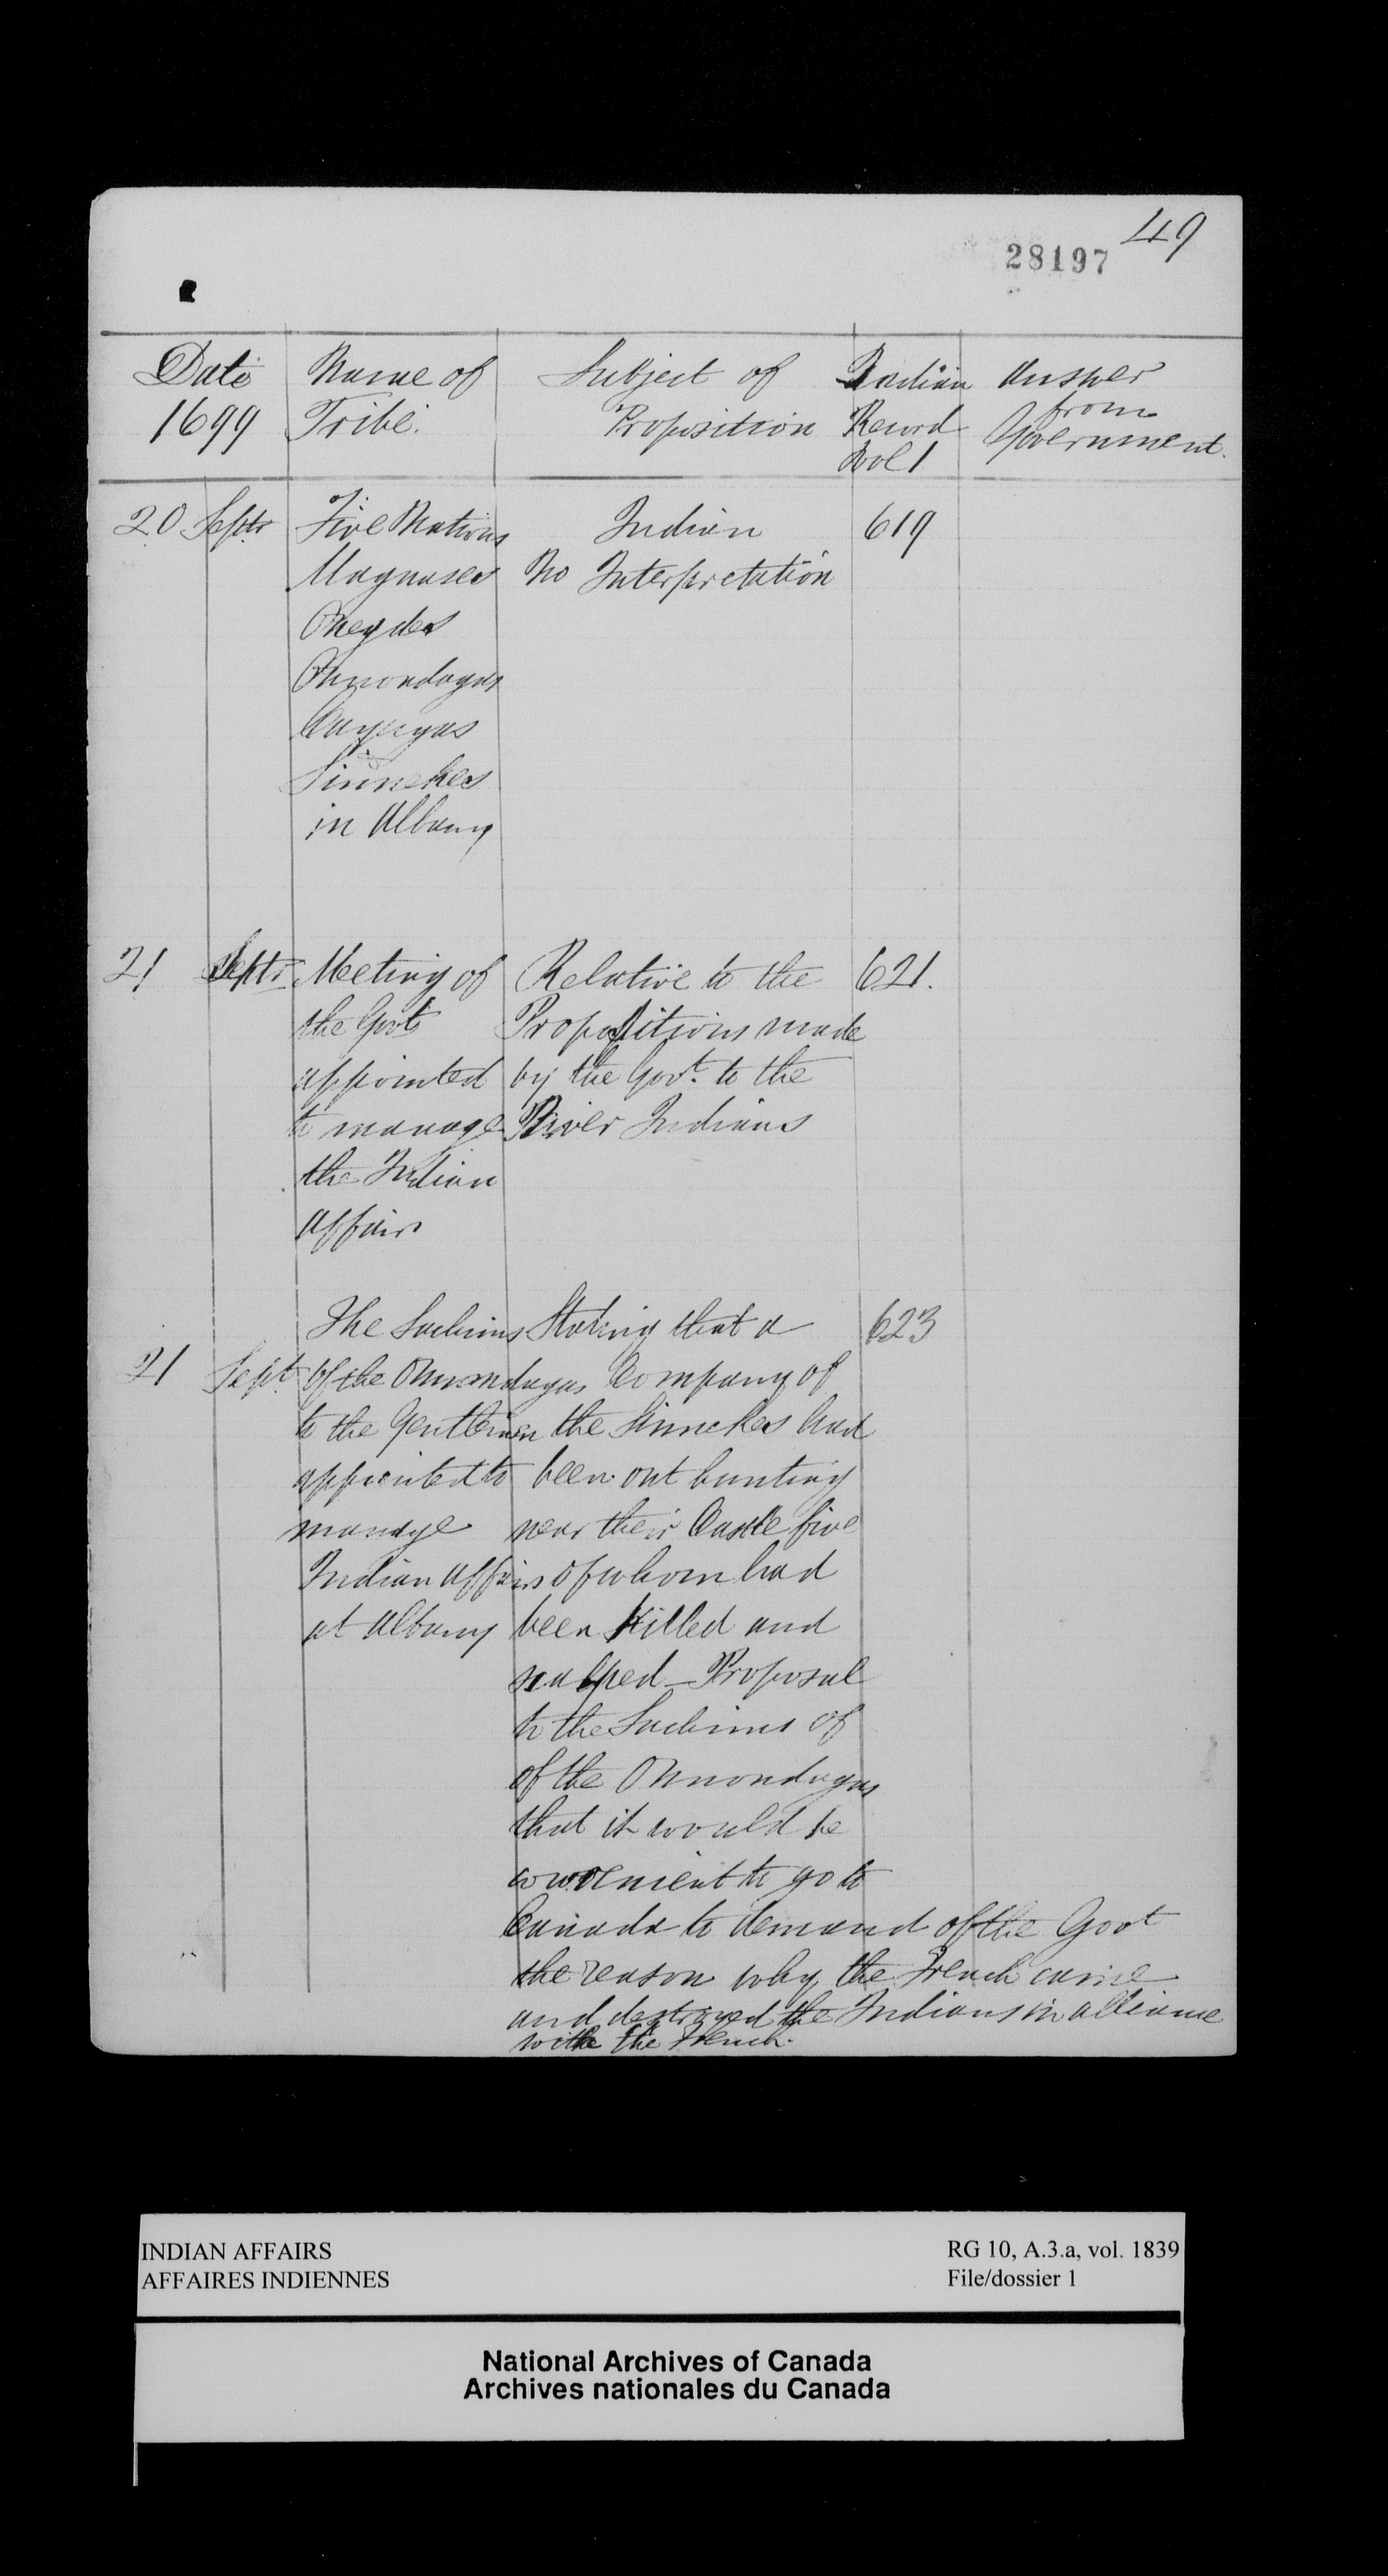 49
28197
Date Name of Subject of Indian Answer
1699 Tribe. Proposition Record from
Vol 1 Government.
20 Septr Five Nations Indian 619
Maquases No Interpretation
Oneydes
Onnondagas
Cayugas
Sinnekes
in Albany
21 Septr Meeting of Relative to the 621.
the Govt Propositions made
appointed by the Govt. to the
to manage River Indians
the Indian
Affairs
The Sachims Stating that a 623
21 Sept. of the Onnondagas Company of
to the Gentlemen the Sinnekes had
appointed to been out hunting
manage near their Castle five
Indian Affairs of whom had
at Albany been killed and
scalped – Proposal
to the Sachims of
of the Onnondagas
that it would be
convenient to go to
Canada to demand of the Govt
the reason why the French came
and destroyed the Indians in alliance
with the French.
INDIAN AFFAIRS RG 10, A.3.a, vol. 1839
AFFAIRES INDIENNES File/dossier 1
National Archives of Canada
Archives nationales du Canada